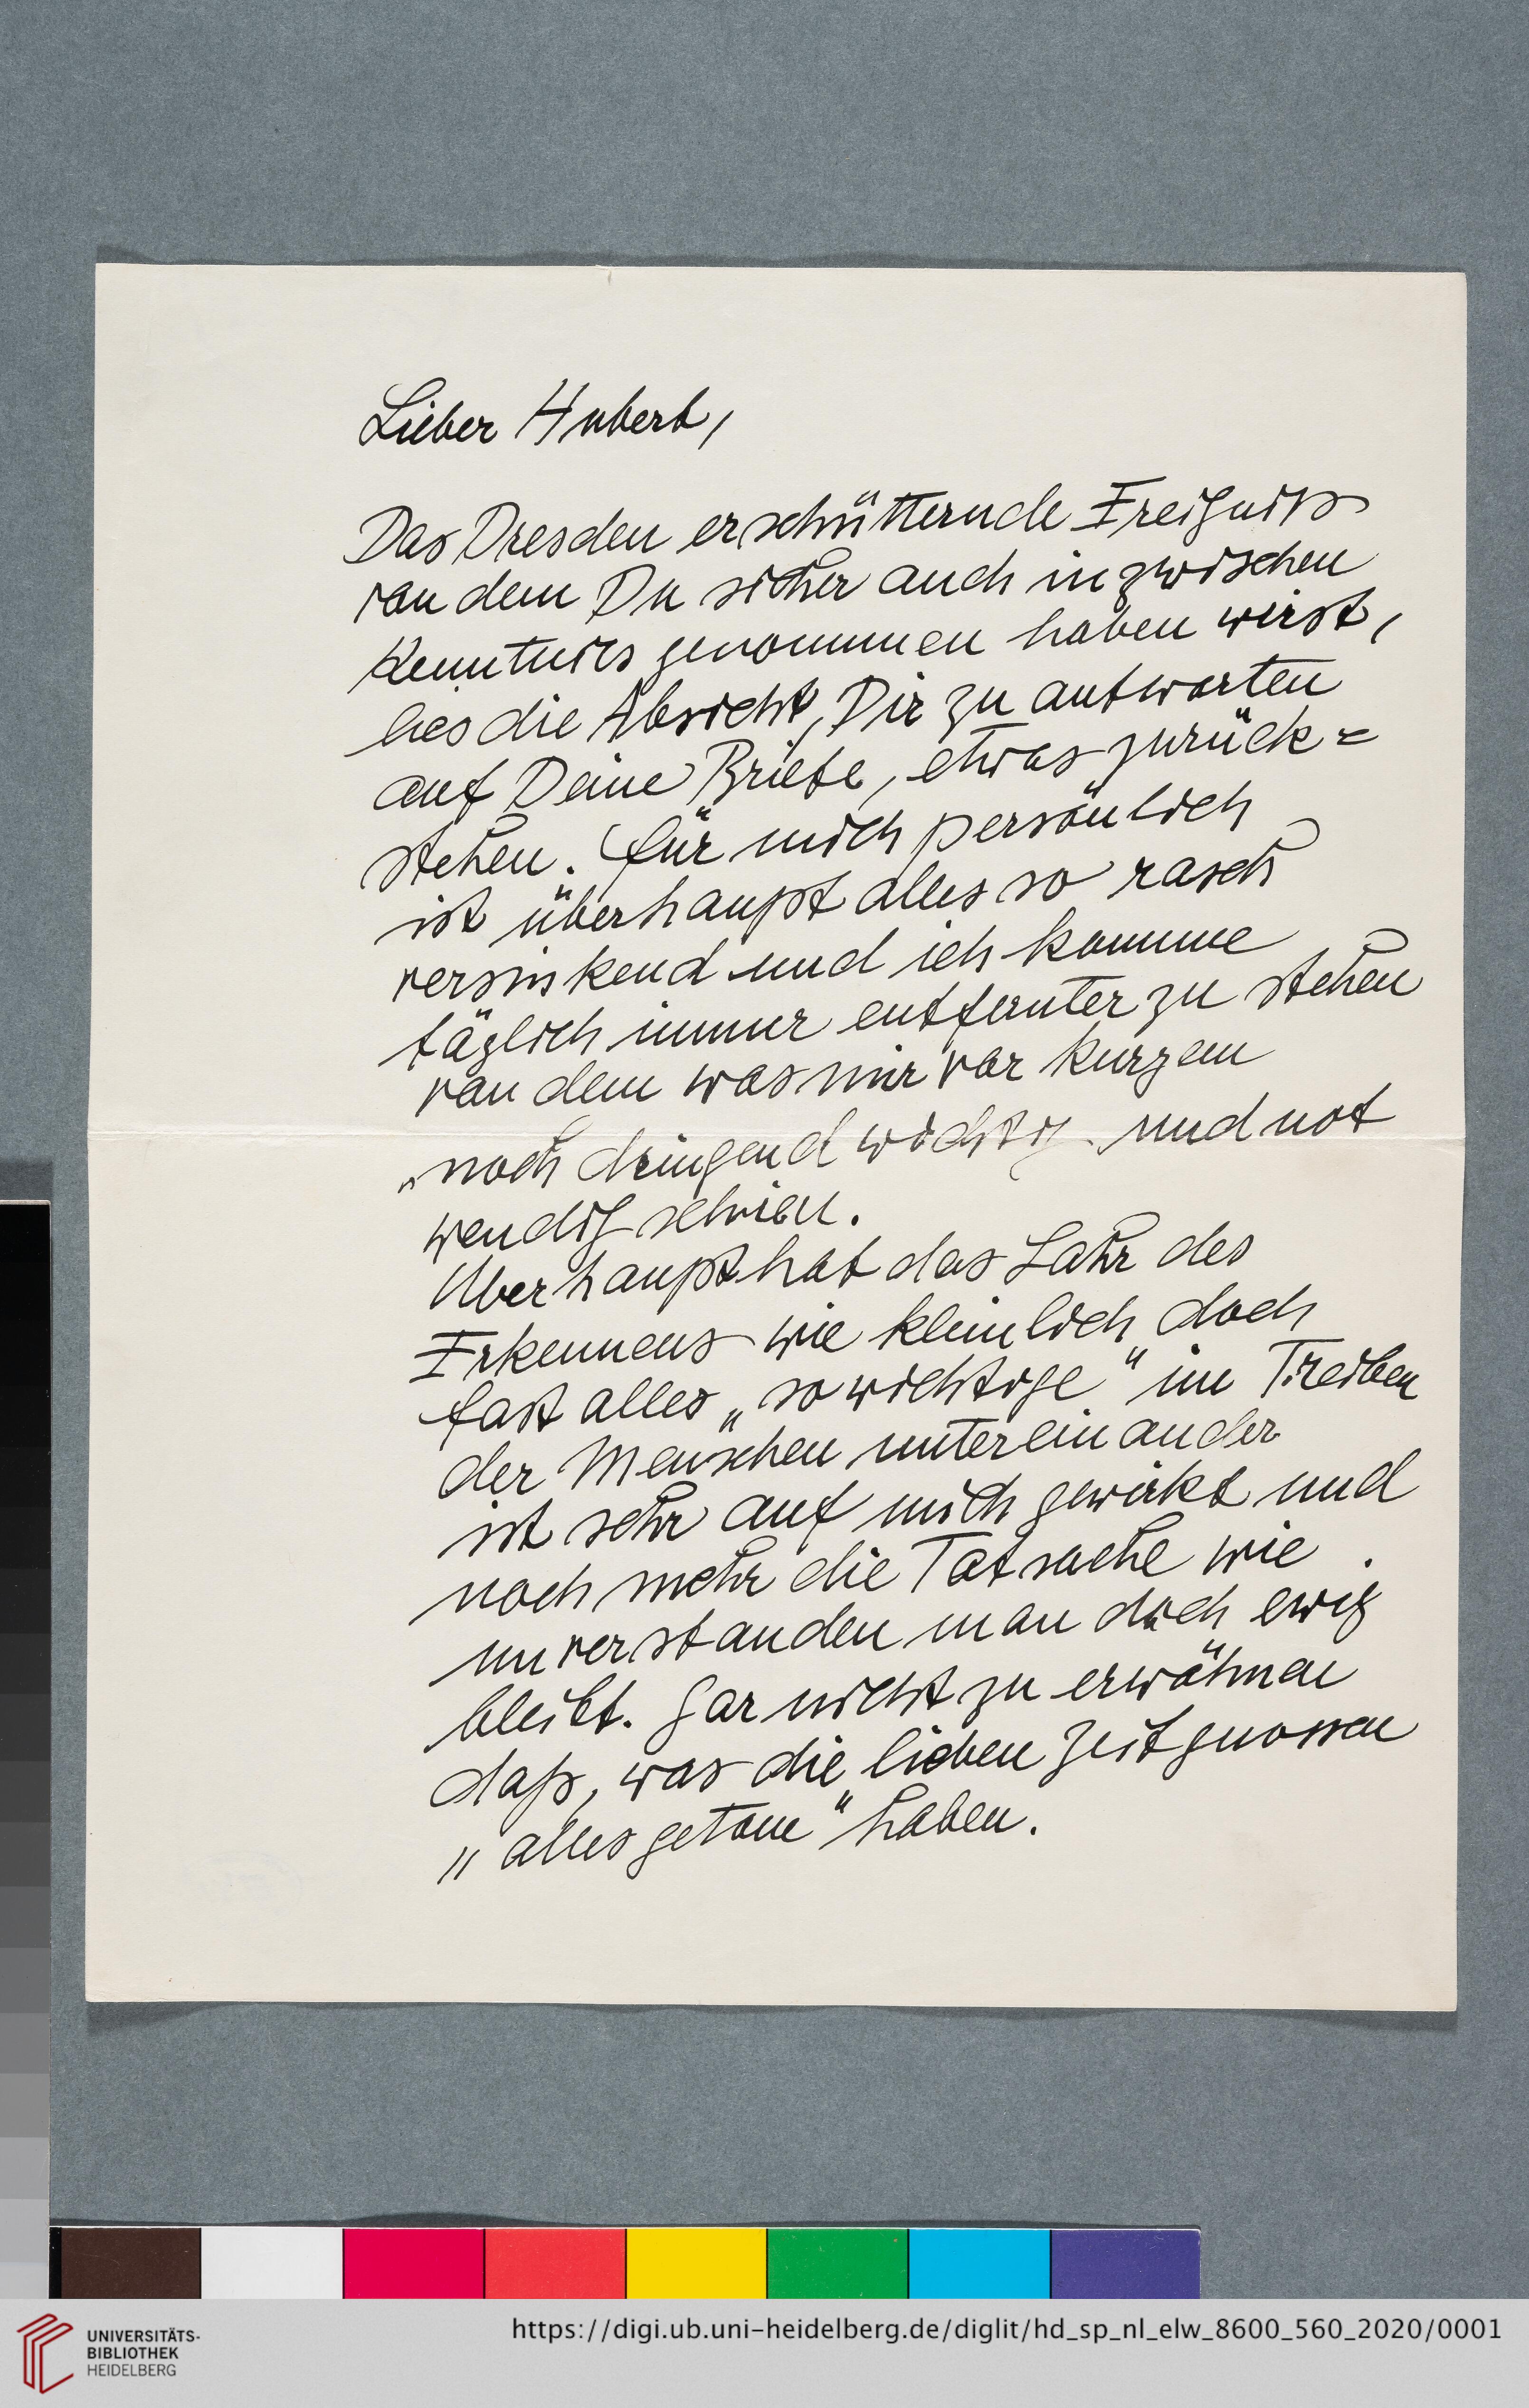 Lieber Hubert,
Das Dresden erschütternde Ereigniss
von dem Du sicher auch inzwischen
Kenntniss genommen haben wirst,
lies die Absicht, Dir zu antworten
auf Deine Briefe, etwas zurück=
stehen. Für mich persönlich
ist überhaupt alles so rasch
versinkend und ich komme
täglich immer entfernter zu stehen
von dem was mir vor kurzem
„noch dringend wichtig und not
wendig schien.
Überhaupt hat das Jahr des
Erkennens wie kleinlich doch
fast alles „so wichtige“ im Treiben
der Menschen untereinander
ist sehr auf mich gewirkt und
noch mehr die Tatsache wie
unverstanden man doch ewig
bleibt. Gar nicht zu erwähnen
daß, was die lieben Zeitgnossen
„alles getane“ haben.
UNIVERSITÄTS-
BIBLIOTHEK
HEIDELBERG
https://digi.ub.uni-heidelberg.de/diglit/hd_sp_nl_elw_8600_560_2020/0001